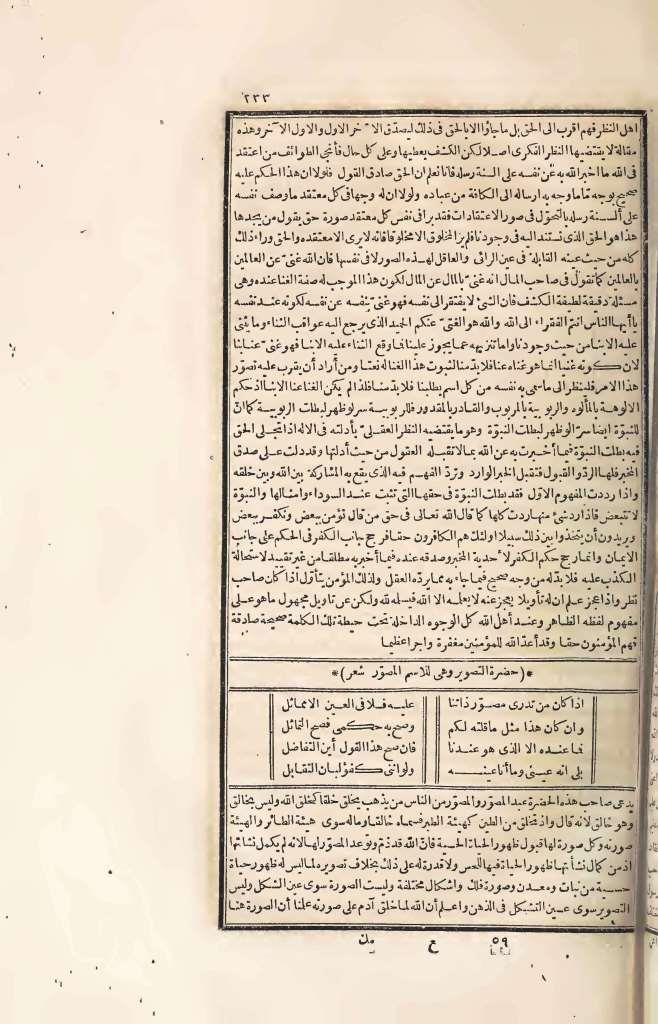 ٢٣٣
اهل النظر فهم اقرب الى الحق بل ما جاؤا الا بالحق فى ذلك ليصدق الآخر الاول والاول الآخر وهذه
مقالة لا يقتضيها النظر الفكرى اصلا لكن الكشف يعطيها وعلى كل حال فأنجى الطوائف من اعتقد
فى الله ما اخبر الله به عن نفسه على السنة رسله فانا نعلم ان الحق صادق القول فلولا ان هذا الحكم عليه
صحيح بوجه ما ما وجه به ارساله الى الكافة من عباده ولولا ان له وجها فى كل معتقد ما وصف نفسه
على ألسنة رسله بالتحول فى صور الاعتقادات فقد برا فى نفس كل معتقد صورة حق يقول من يجدها
هذا هو الحق الذى نستند اليه فى وجودنا فلم ير المخلوق الا مخلوقا فانه لا يرى الا معتقده والحق وراء ذلك
كله من حيث عينه القابلة فى عين الرائى والعاقل لهذه الصور لا فى نفسها فان الله غنى عن العالمين
بالعالمين كما نقول فى صاحب المال انه غنى بالمال عن المال لكون هذا الموجب له صفة الغنا عنه وهى
مسئلة دقيقة لطيفة الكشف فان الشئ لا يفتقر الى نفسه فهو غنى بنفسه عن نفسه لكونه عند نفسه
يا أيها الناس انتم الفقراء الى الله والله هو الغنى عنكم الحميد الذى يرجع اليه عواقب الثناء وما يثنى
عليه الا بنا من حيث وجودنا واما تنزيهه عما يجوز علينا فما وقع الثناء عليه الا بنا فهو غنى عنا بنا
لان كونه غنيا انما هو غناه عنا فلابد منا لثبوت هذا الغنا له نعتا ومن أراد أن يقرب عليه تصور
هذا الامر فلينظر الى ما سمى به نفسه من كل اسم يطلبنا فلابد منا فلذا لم يكن الغنا عنا الا بنا اذ حكم
الالوهة بالمألوه والربوبية بالمربوب والقادر بالمقدور فللربوبية سر لو ظهر لبطلت الربوبية كما انّ
للنبوة ايضا سر لو ظهر لبطلت النبوة وهو ما يقتضيه النظر العقلى بأدلته فى الاله اذا تجلى الحق
فيه بطلت النبوة فيما أخبرت به عن الله بما لا تقبله العقول من حيث أدلتها وقد دلت على صدق
المخبر فلها الرد والقبول فتقبل الخبر الوارد وترد الفهم فيه الذى يقع به المشاركة بين الله وبين خلقه
واذا رددت المفهوم الاول فقد بطلت النبوة فى حقها التى تثبت عند السوداء وامثالها والنبوة
لا تتبعض فاذا رد شئ منها ردت كلها كما قال الله تعالى فى حق من قال نؤمن ببعض ونكفر ببعض
ويريدون أن يتخذوا بين ذلك سبيلا اولئك هم الكافرون حقا فرجح جانب الكفر فى الحكم على جانب
الايمان وانما رجح حكم الكفر لاحدية المخبر وصدقه عنده فيما أخبر به مطلقا من غير تقييد لاستحالة
الكذب عليه فلابد له من وجه صحيح فيما جاء به مما يرده العقل ولذلك المؤمن يتأول اذا كان صاحب
نظر واذا عجز علم ان له تأويلا يعجز عنه لا يعلمه الا الله فيسلمه لله ولكن عن تاويل مجهول ما هو على
مفهوم لفظه الظاهر وعند أهل الله كل الوجوه الداخلة تحت حيطة تلك الكلمة صحيحة صادقة
فهم المؤمنون حقا وقد أعد الله للمؤمنين مغفرة واجرا عظيما
*(حضرة التصوير وهى للاسم المصور شعر)*
اذا كان من تدرى مصور ذاتنا عليه فلا فى العين الا مماثل
وان كان هذا مثل ما قلته لكم وصح به حكمى فصح التماثل
فما عنده الا الذى هو عندنا فان صح هذا القول أين التفاضل
بلى انه عينى وما أنا عينه ولو اننى كفؤ لبان التقابل
يدعى صاحب هذه الحضرة عبد المصور والمصور من الناس من يذهب يخلق خلقا كخلق الله وليس بخالق
وهو خالق لانه قال واذ تخلق من الطين كهيئة الطير فسماه خالقا وما له سوى هيئة الطائر والهيئة
صورته وكل صورة لها قبول ظهور الحياة الحسية فان الله قد ذم وتوعد المصور لها لانه لم يكمل نشأتها
اذ من كمال نشأتها ظهور الحياة فيها للحس ولا قدرة له على ذلك بخلاف تصويره لما ليس له ظهور حياة
حسية من نبات ومعدن وصورة فلك واشكال مختلفة وليست الصورة سوى عين الشكل وليس
التصوير سوى عين التشكل فى الذهن واعلم أن الله لما خلق آدم على صورته علمنا أن الصورة هنا
٥٩ ع مك